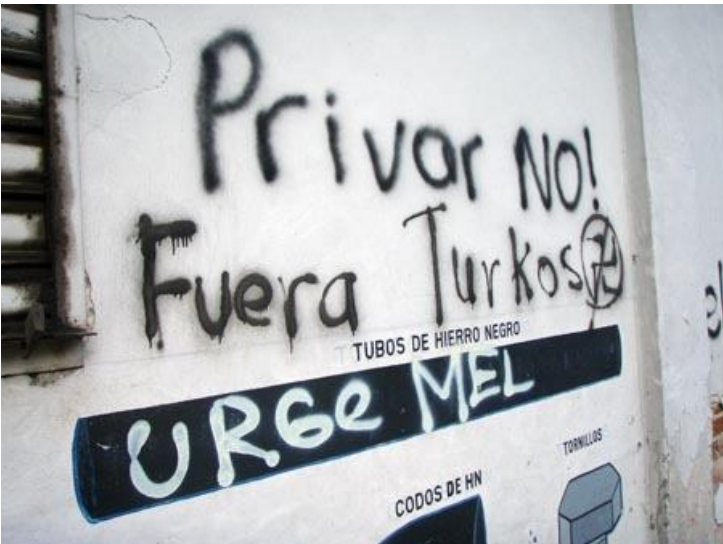 Privar NO!
Fuera Turkos
TUBOS DE HIERRO NEGRO
URGe MEL
CODOS DE HN
TORNILLOS